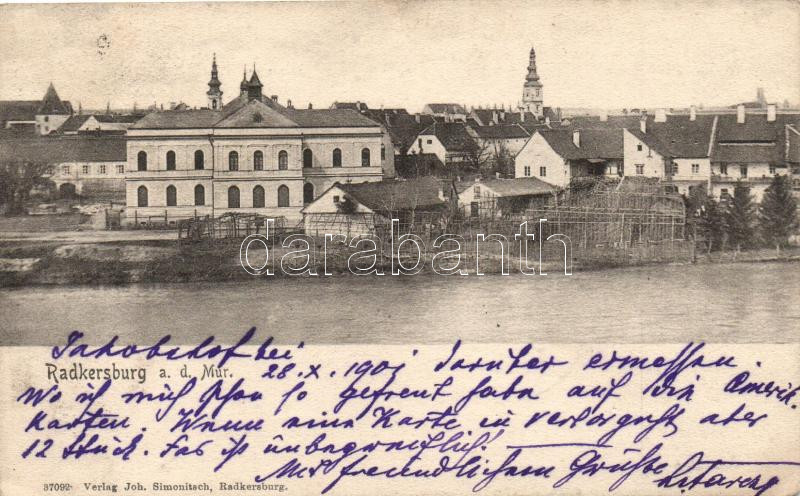 darabanth
Jakobshof bei
Radkersburg a. d. Mur.
28. X. 190 darüber ermessen.
Wo ich mich schon so gefreut habe auf die Amerik.
Karten. Wenn eine Karte in verlorgeht aber
12 Stück. Das ist unbegreiflich!
Mit freundlichem Grüße
37092 Verlag Joh. Simonitsch, Radkersburg.